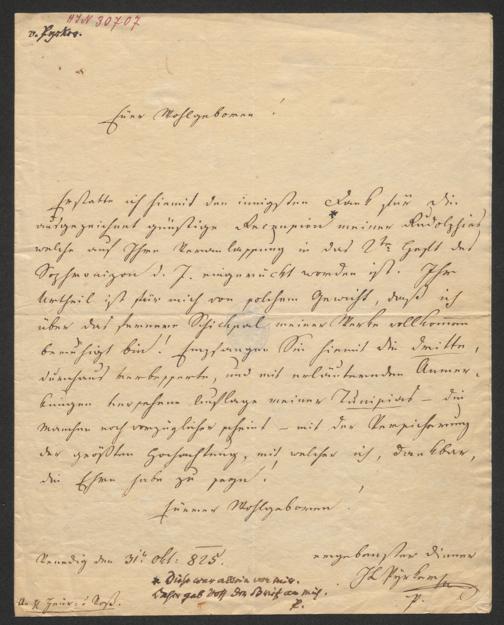 HIN 30707
v. Pyrker.
Euer Wohlgeboren!
Erstatte ich hiemit den innigsten Dank für die
ausgezeichnet günstige Recension* meiner Rudolphias
welche auf Ihre Veranlassung in das 2te Heft des
Sophronizon d. J. eingerückt worden ist. Ihr
Urtheil ist für mich von solchem Gewicht, daß ich
über das fernere Schicksal meiner Werke vollkommen
beruhigt bin! Empfangen Sie hiemit die dritte,
durchaus verbesserte, und mit erläuternden Anmer-
kungen versehene Auflage meiner Tunisias – die
Manchen noch vorzüglicher scheint – mit der Versicherung
der größten Hochachtung, mit welcher ich, dankbar,
die Ehre habe zu seyn!
Euerer Wohlgeboren!
Venedig den 31t Okt: 825.
ergebenster Diener
JL Pyrker
* Diese war allein von mir.
Daher gab Voß den Brief an mich.
P.
An H. Heinr: Voß.